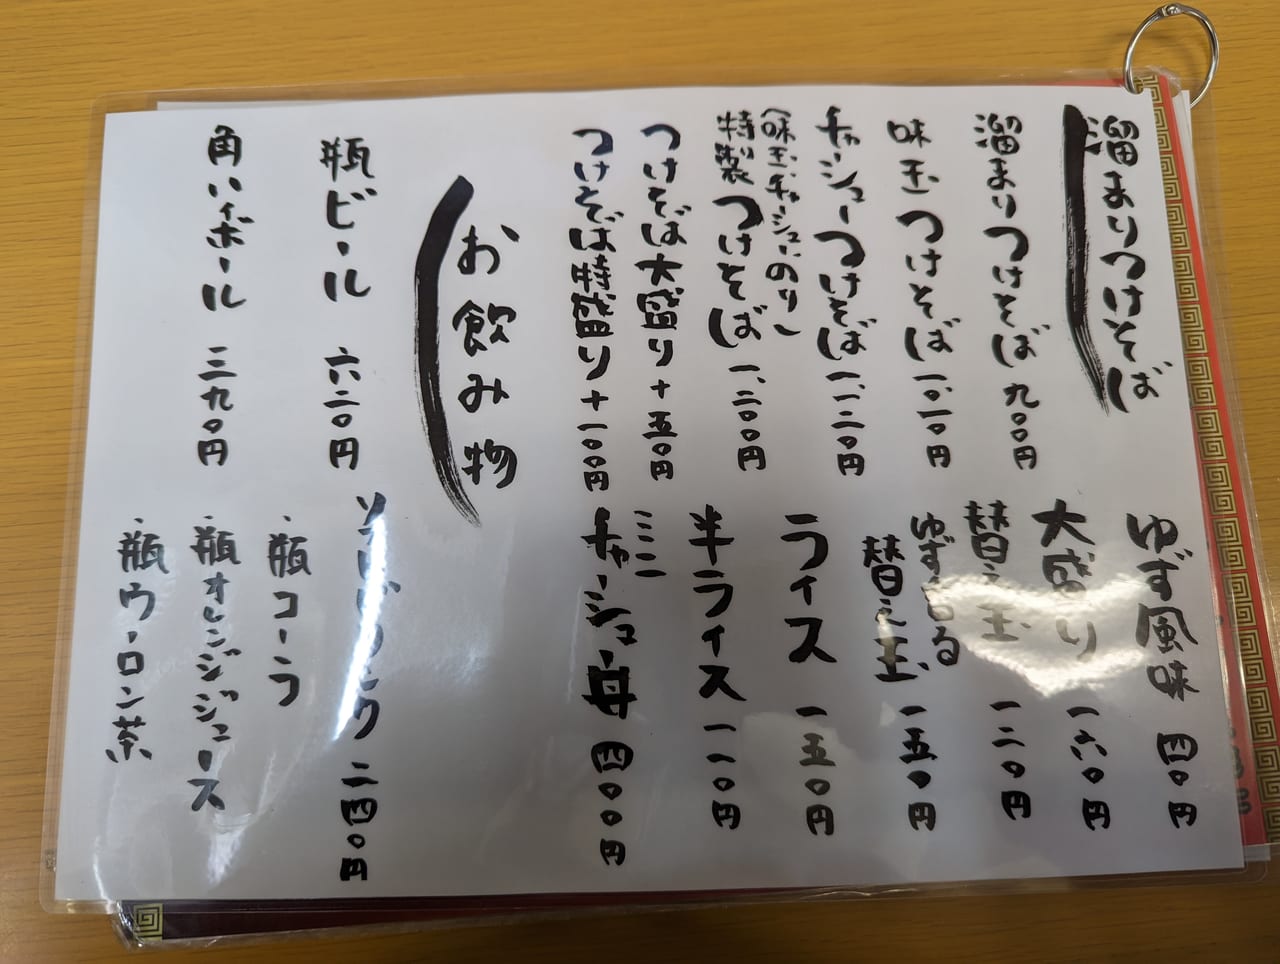 溜まりつけそば
溜まりつけそば 九〇〇円
味玉つけそば 一、〇一〇円
チャーシューつけそば 一、一二〇円
(味玉、チャーシュー、のり)
特製つけそば 一、二〇〇円
つけそば大盛り+五〇円
つけそば特盛り+一〇〇円
ゆず風味 四〇円
大盛り 一六〇円
替え玉 一二〇円
ゆず香る
替え玉 一五〇円
ライス 一五〇円
半ライス 一一〇円
ミニ
チャーシュー丼 四〇〇円
お飲み物
瓶ビール 六二〇円
角ハイボール 三九〇円
ソフトドリンク 二四〇円
・瓶コーラ
・瓶オレンジジュース
・瓶ウーロン茶